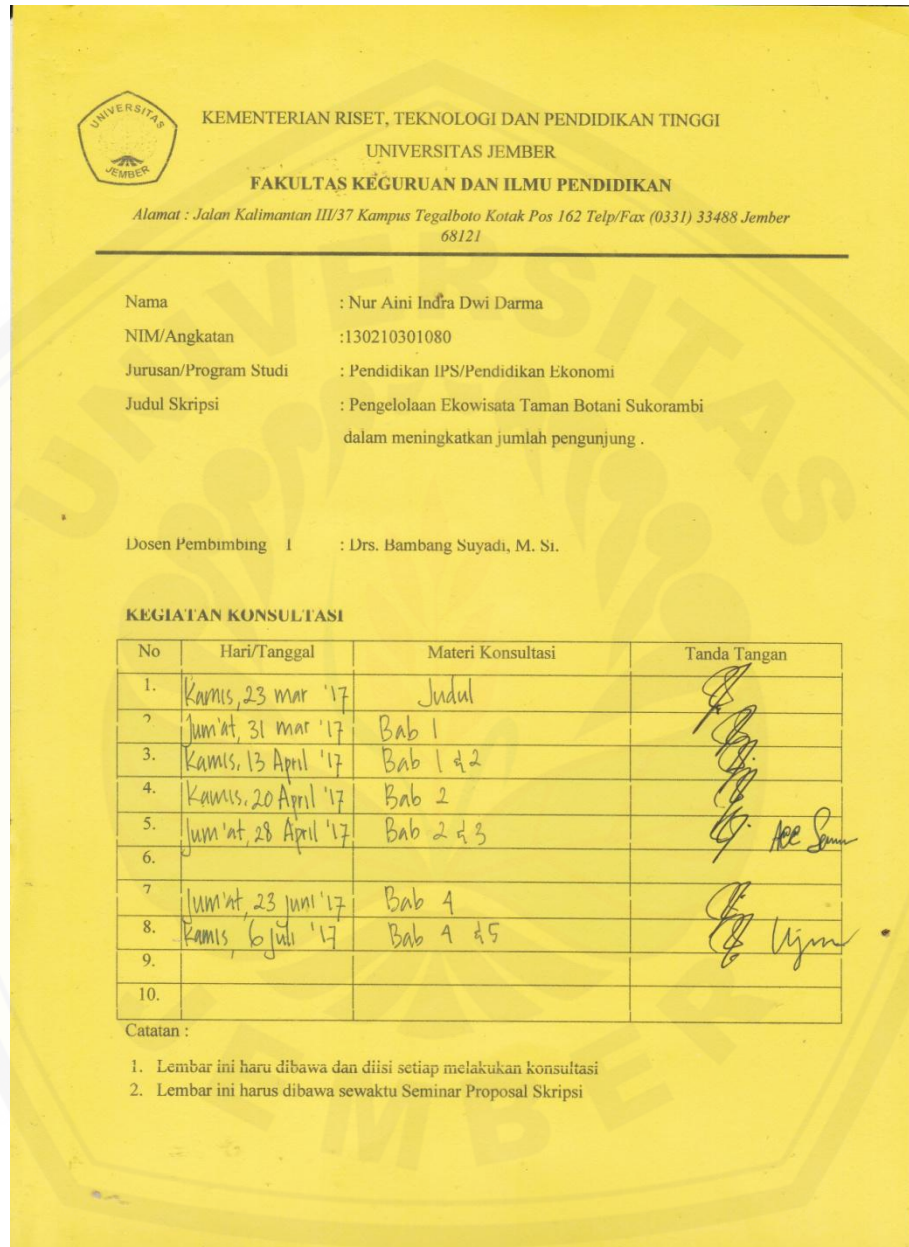 UNIVERSITAS
JEMBER
KEMENTERIAN RISET, TEKNOLOGI DAN PENDIDIKAN TINGGI
UNIVERSITAS JEMBER
FAKULTAS KEGURUAN DAN ILMU PENDIDIKAN
Alamat : Jalan Kalimantan III/37 Kampus Tegalboto Kotak Pos 162 Telp/Fax (0331) 33488 Jember
68121
Nama : Nur Aini Indra Dwi Darma
NIM/Angkatan :130210301080
Jurusan/Program Studi : Pendidikan IPS/Pendidikan Ekonomi
Judul Skripsi : Pengelolaan Ekowisata Taman Botani Sukorambi
dalam meningkatkan jumlah pengunjung .
Dosen Pembimbing I : Drs. Bambang Suyadi, M. Si.
KEGIATAN KONSULTASI
No Hari/Tanggal Materi Konsultasi Tanda Tangan
1. Kamis, 23 mar '17 Judul
2 Jum'at, 31 mar '17 Bab 1
3. Kamis, 13 April '17 Bab 1 & 2
4. Kamis, 20 April '17 Bab 2
5. Jum'at, 28 April '17 Bab 2 & 3 Acc
6.
7 Jum'at, 23 juni '17 Bab 4
8. Kamis, 6 juli '17 Bab 4 & 5
9.
10.
Catatan :
1. Lembar ini haru dibawa dan diisi setiap melakukan konsultasi
2. Lembar ini harus dibawa sewaktu Seminar Proposal Skripsi
UNIVERSITAS
JEMBER